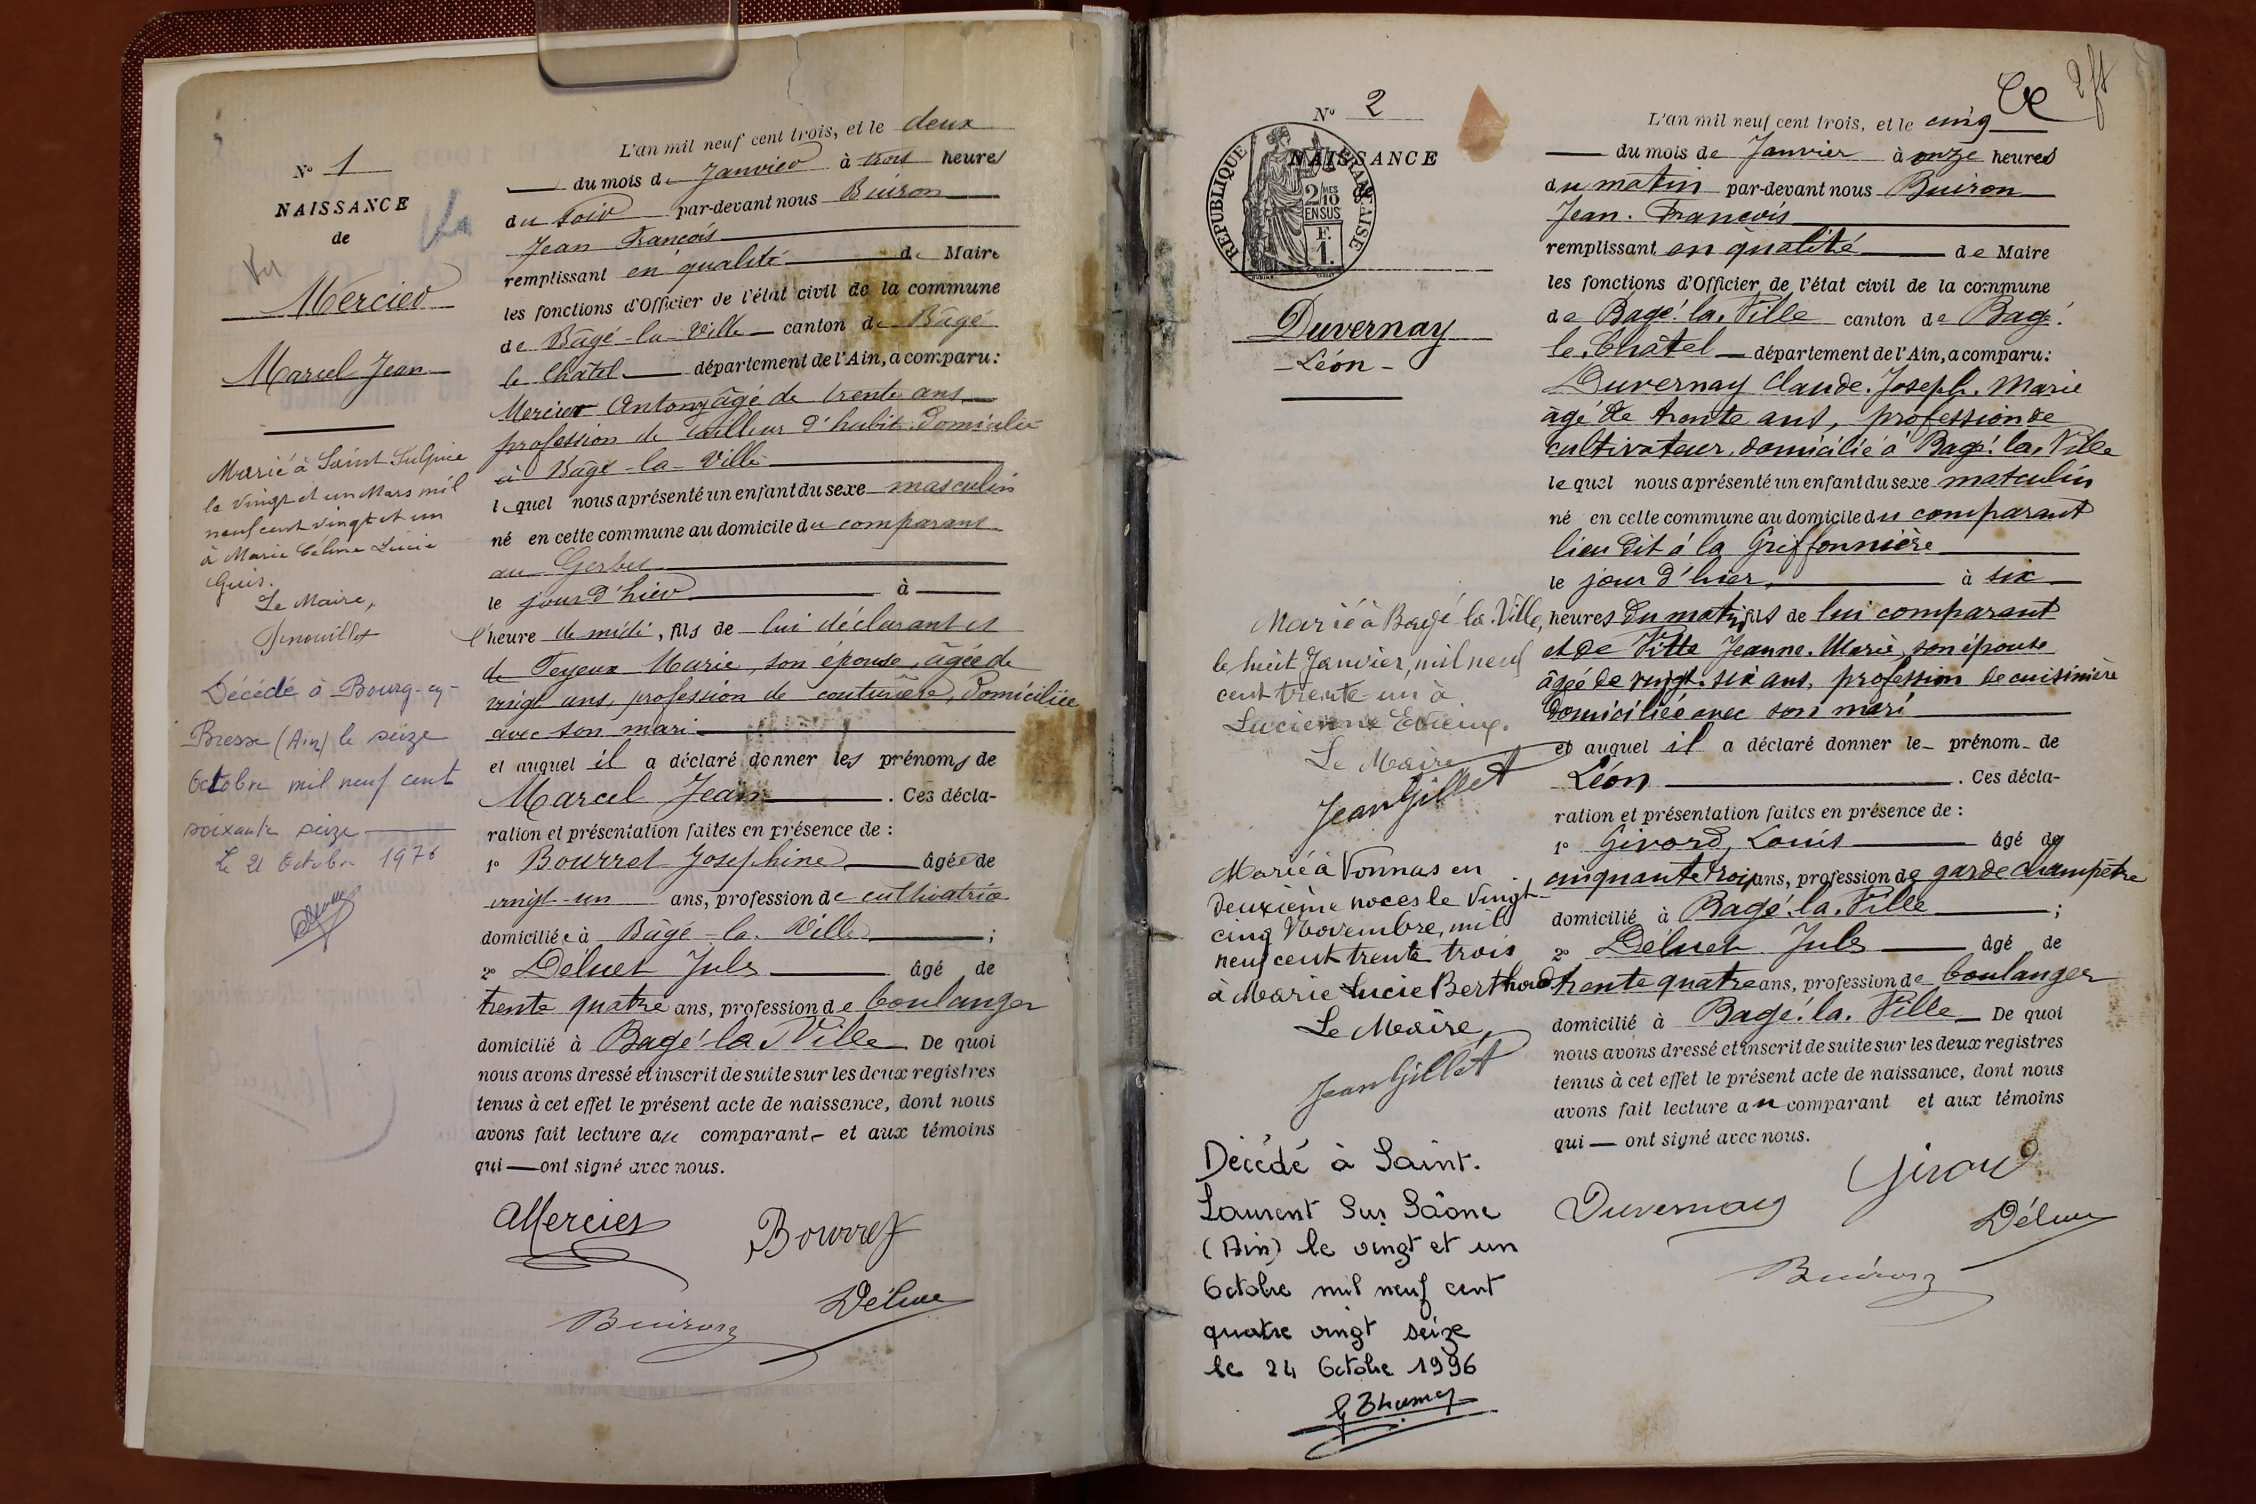 Nº 1
NAISSANCE
de
Mercier
Marcel Jean
Marié à Saint Sulpice
le vingt et un Mars mil
neuf cent vingt et un
à Marie Celine Lucie
Guis.
Le Maire,
Décédé à Bourg-en-
Bresse (Ain) le seize
Octobre mil neuf cent
soixante seize
Le 21 Octobre 1976
L'an mil neuf cent trois, et le deux
du mois de Janvier à trois heures
du soir par-devant nous Buiron
Jean François
remplissant en qualité de Maire
les fonctions d'Officier de l'état civil de la commune
de Bâgé-la-Ville canton de Bâgé
le Châtel département de l'Ain, a comparu:
Mercier Antony âgé de trente ans
profession de tailleur d'habit domicilié
à Bâgé-la-Ville
lequel nous a présenté un enfant du sexe masculin
né en cette commune au domicile du comparant
au Gerbet
le jour d'hier à
l'heure de midi, fils de lui déclarant et
de Teyeux Marie, son épouse, âgée de
vingt ans, profession de couturière, domiciliée
avec son mari
et auquel il a déclaré donner les prénoms de
Marcel Jean. Ces décla-
ration et présentation faites en présence de :
1º Bourret Josephine âgée de
vingt-un ans, profession de cultivatrice
domiciliée à Bâgé-la-Ville ;
2º Déluet Jules âgé de
trente quatre ans, profession de boulanger
domicilié à Bagé-la-Ville De quoi
nous avons dressé et inscrit de suite sur les deux registres
tenus à cet effet le présent acte de naissance, dont nous
avons fait lecture au comparant - et aux témoins
qui — ont signé avec nous.
AMercier
Bourret
Buiron
Déluet
2 ft
Nº 2
NAISSANCE
de
REPUBLIQUE FRANÇAISE
2/10 MES
EN SUS
F.
1.
Duvernay
- Léon -
Marié à Bagé la Ville,
le huit Janvier, mil neuf
cent trente-un à
Lucienne
Le Maire
Jean Gillet
Marié à Vonnas en
deuxième noces le vingt-
cinq Novembre, mil
neuf cent trente trois
à Marie Lucie Berthoud
Le Maire,
Jean Gillet
Décédé à Saint-
Laurent Sur Saône
(Ain) le vingt et un
Octobre mil neuf cent
quatre vingt seize
le 24 Octobre 1996
L'an mil neuf cent trois, et le cinq
du mois de Janvier à onze heures
du matin par-devant nous Buiron
Jean-François
remplissant en qualité de Maire
les fonctions d'Officier de l'état civil de la commune
de Bagé-la-Ville canton de Bagé-
le-Châtel département de l'Ain, a comparu:
Duvernay Claude-Joseph-Marie
âgé de trente ans, profession de
cultivateur, domicilié à Bagé-la-Ville
lequel nous a présenté un enfant du sexe masculin
né en cette commune au domicile du comparant
lieu dit à la Griffonnière
le jour d'hier, à six
heures du matin, fils de lui comparant
et de Vitte Jeanne-Marie, son épouse
âgée de vingt-six ans, profession de cuisinière
domiciliée avec son mari
et auquel il a déclaré donner le prénom de
Léon. Ces décla-
ration et présentation faites en présence de :
1º Girord, Louis âgé de
cinquante trois ans, profession de garde champêtre
domicilié à Bagé-la-Ville ;
2º Déluet Jules âgé de
trente quatre ans, profession de boulanger
domicilié à Bagé-la-Ville De quoi
nous avons dressé et inscrit de suite sur les deux registres
tenus à cet effet le présent acte de naissance, dont nous
avons fait lecture au comparant et aux témoins
qui — ont signé avec nous.
Duvernay
Girord
Déluet
Buiron